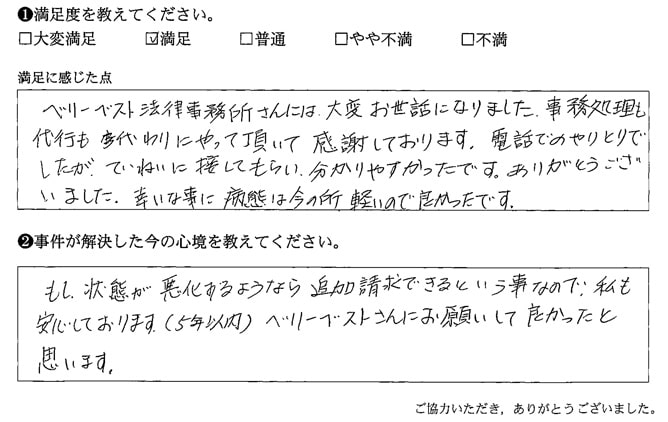 ❶満足度を教えてください。
□大変満足 ☑満足 □普通 □やや不満 □不満
満足に感じた点
ベリーベスト法律事務所さんには、大変お世話になりました。事務処理も
代行も 代わりにやって頂いて 感謝しております。電話でのやりとりで
したが、ていねいに接してもらい、分かりやすかったです。ありがとうござ
いました。幸いな事に 病態は今の所、軽いので良かったです。
❷事件が解決した今の心境を教えてください。
もし、状態が悪化するようなら 追加請求できるという事なので、私も
安心しております。(5年以内) ベリーベストさんにお願いして 良かったと
思います。
ご協力いただき，ありがとうございました。